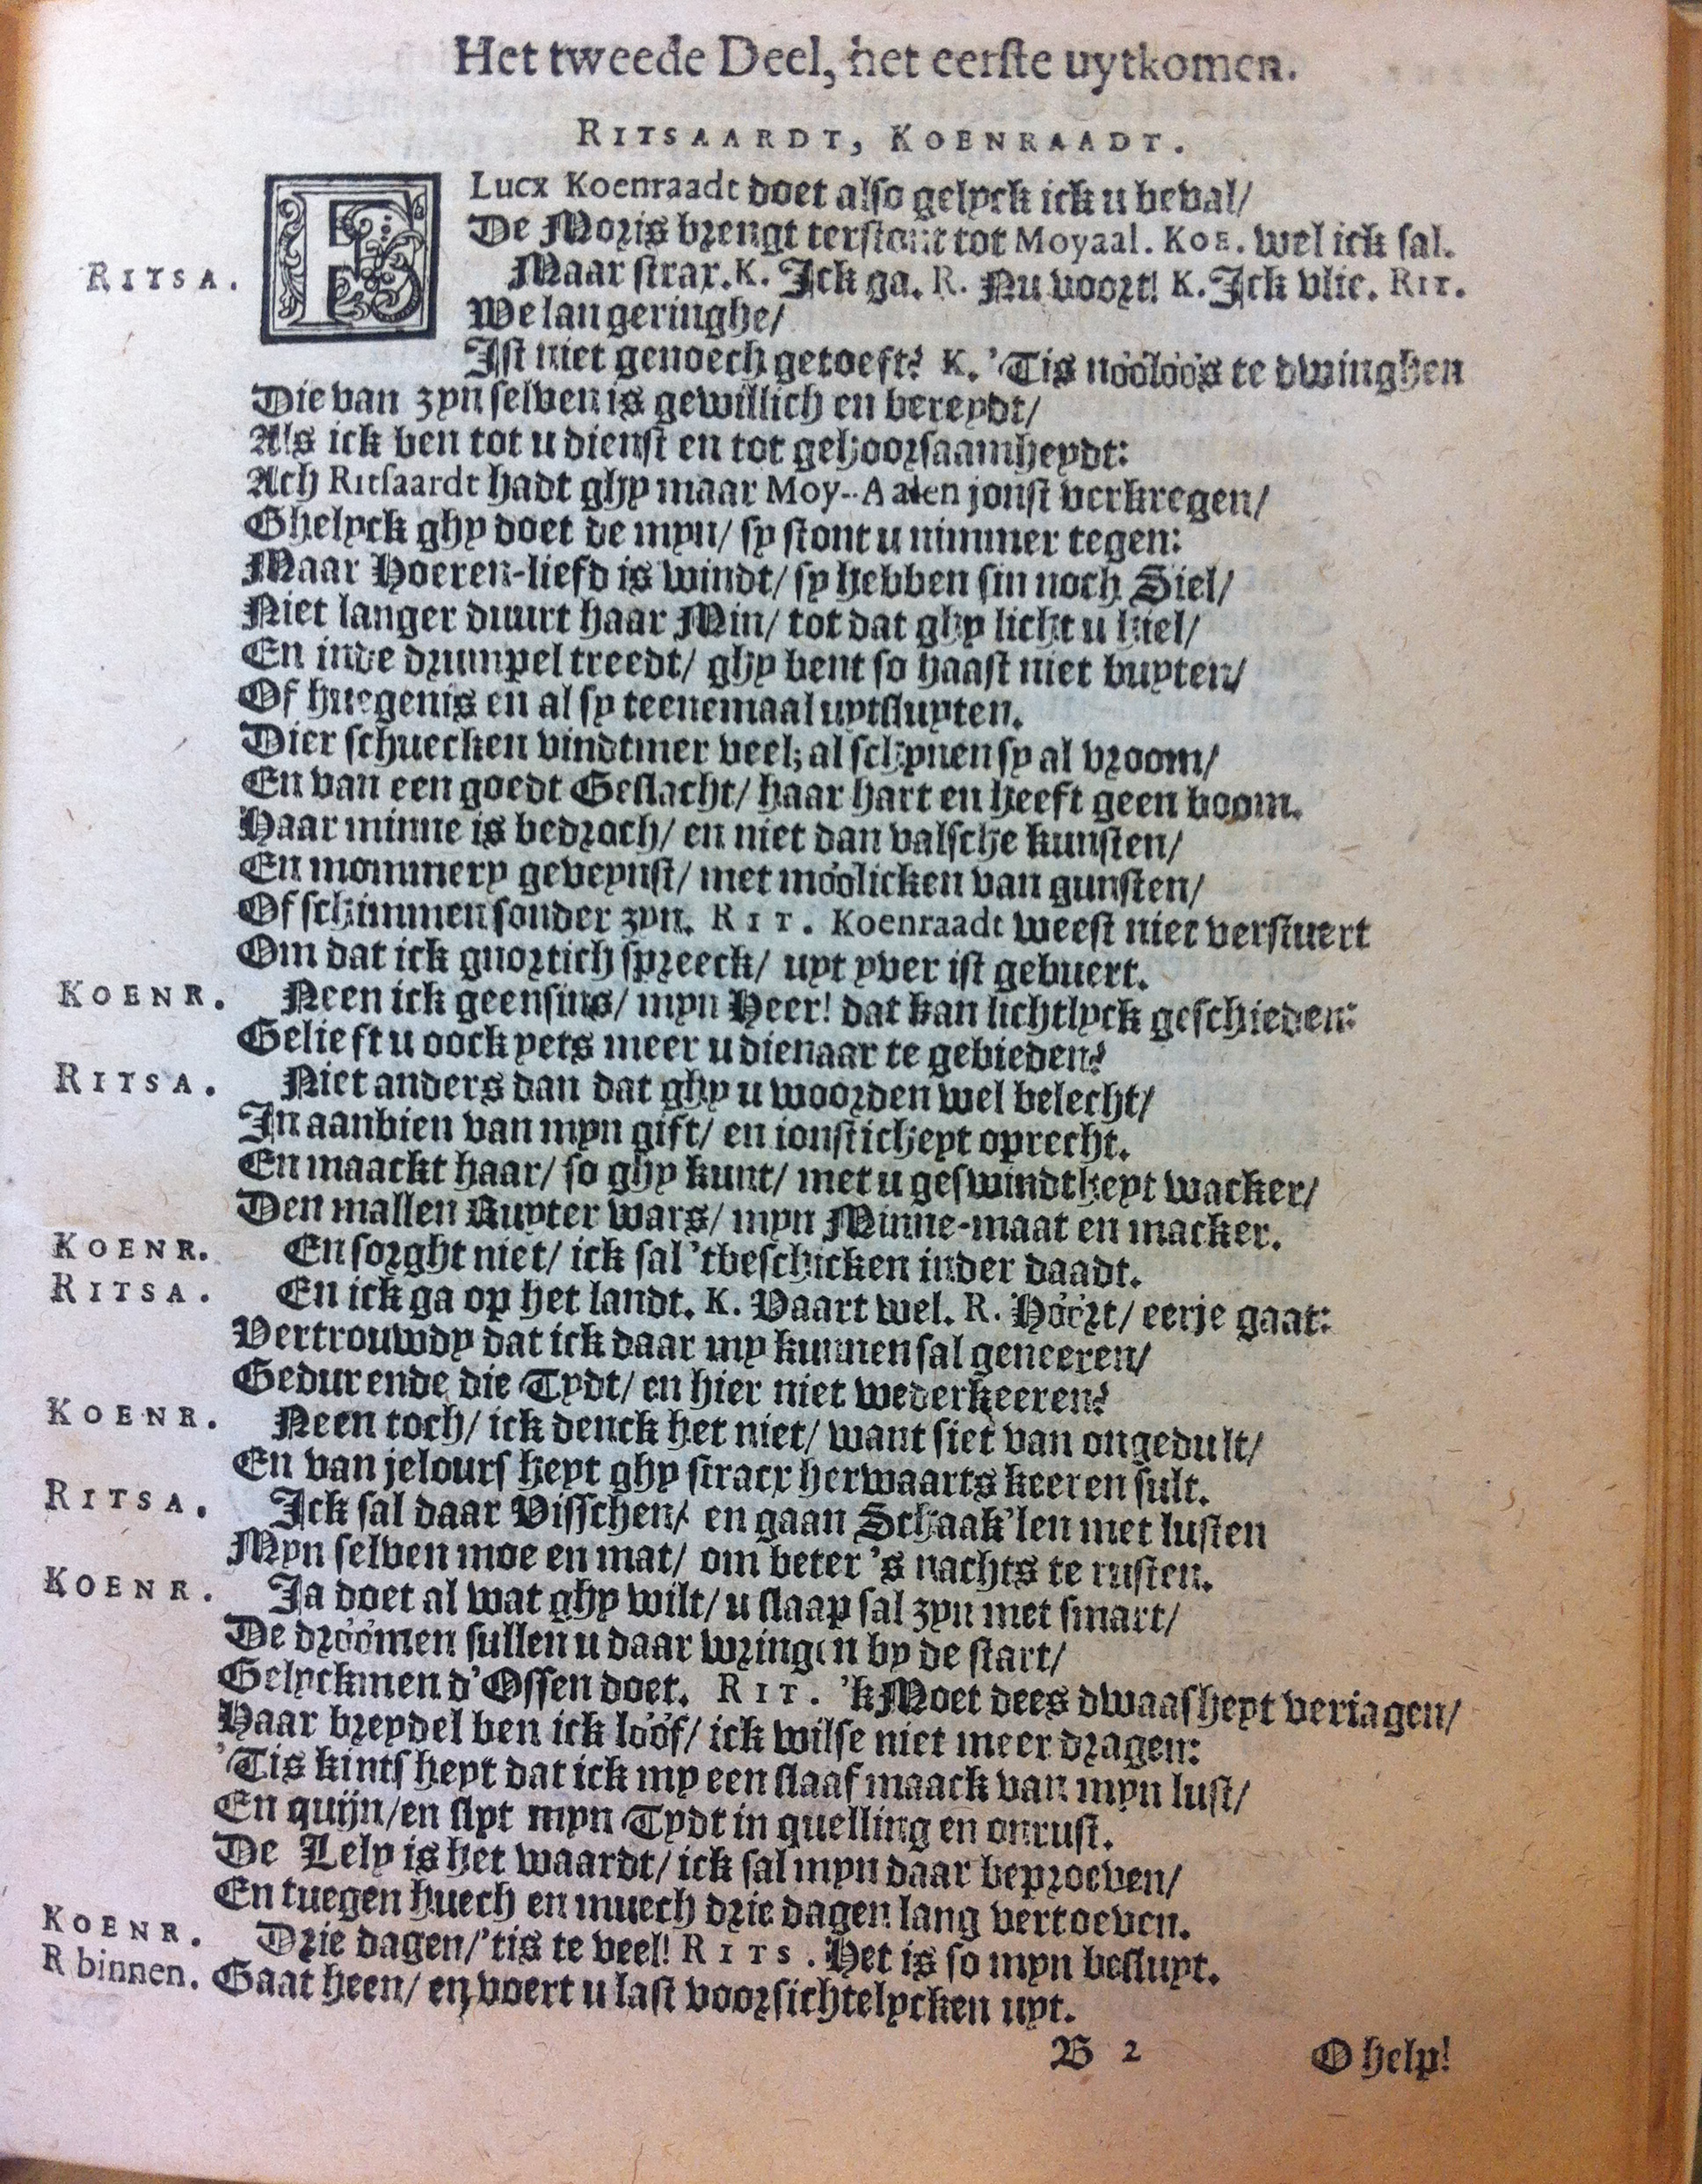 Het tweede Deel, het eerste uytkomen.
RITSAARDT, KOENRAADT.
FLucx Koenraadt doet also gelyck ick u beval/
De Moris brengt terstont tot Moyaal. KOE. wel ick sal.
RITSA. Maar strax. K. Ick ga. R. Nu voort! K. Ick vlie. RIT.
We lan geringhe/
Ist niet genoech getoeft? K. 'Tis nóólóós te dwinghen
Die van zyn selven is gewillich en bereydt/
Als ick ben tot u dienst en tot gehoorsaamheydt:
Ach Ritsaardt hadt ghy maar Moy-Aalen jonst verkregen/
Ghelyck ghy doet de myn/ sy stont u nimmer tegen:
Maar Hoeren-liefd is windt/ sy hebben sin noch Siel/
Niet langer duurt haar Min/ tot dat ghy licht u hiel/
En inde drumpel treedt/ ghy bent so haast niet buyten/
Of huegenis en al sy teenemaal uytsluyten.
Dier schuecken vindtmer veel; al schynen sy al vroom/
En van een goedt Geslacht/ haar hart en heeft geen boom.
Haar minne is bedroch/ en niet dan valsche kunsten/
En mommery geveynst/ met móólicken van gunsten/
Of schimmen sonder zyn. RIT. Koenraadt weest niet verstuert
Om dat ick gnortich spreeck/ uyt yver ist gebuert.
KOENR. Neen ick geensins/ myn Heer! dat kan lichtlyck geschieden:
Gelieft u oock yets meer u dienaar te gebieden?
RITSA. Niet anders dan dat ghy u woorden wel belecht/
In aanbien van myn gift/ en ionsticheyt oprecht.
En maackt haar/ so ghy kunt/ met u geswindtheyt wacker/
Den mallen Ruyter wars/ myn Minne-maat en macker.
KOENR. En sorght niet/ ick sal 'tbeschicken inder daadt.
RITSA. En ick ga op het landt. K. Vaart wel. R. Hóórt/ eerje gaat:
Vertrouwdy dat ick daar my kunnen sal geneeren/
Gedurende die Tydt/ en hier niet wederkeeren?
KOENR. Neen toch/ ick denck het niet/ want siet van ongedult/
En van jelours heyt ghy stracx herwaarts keeren sult.
RITSA. Ick sal daar Visschen/ en gaan Schaak'len met lusten
Myn selven moe en mat/ om beter 's nachts te rusten.
KOENR. Ja doet al wat ghy wilt/ u slaap sal zyn met smart/
De dróómen sullen u daar wringen by de start/
Gelyckmen d'Ossen doet. RIT. 'k Moet dees dwaasheyt veriagen/
Haar breydel ben ick lóóf/ ick wilse niet meer dragen:
'Tis kintsheyt dat ick my een slaaf maack van myn lust/
En quijn/ en slyt myn Tydt in quelling en onrust.
De Lely is het waardt/ ick sal myn daar beproeven/
En tuegen huech en muech drie dagen lang vertoeven.
KOENR. Drie dagen/ 'tis te veel! RITS. Het is so myn besluyt.
R binnen. Gaat heen/ en voert u last voorsichtelycken uyt.
B 2 O help!